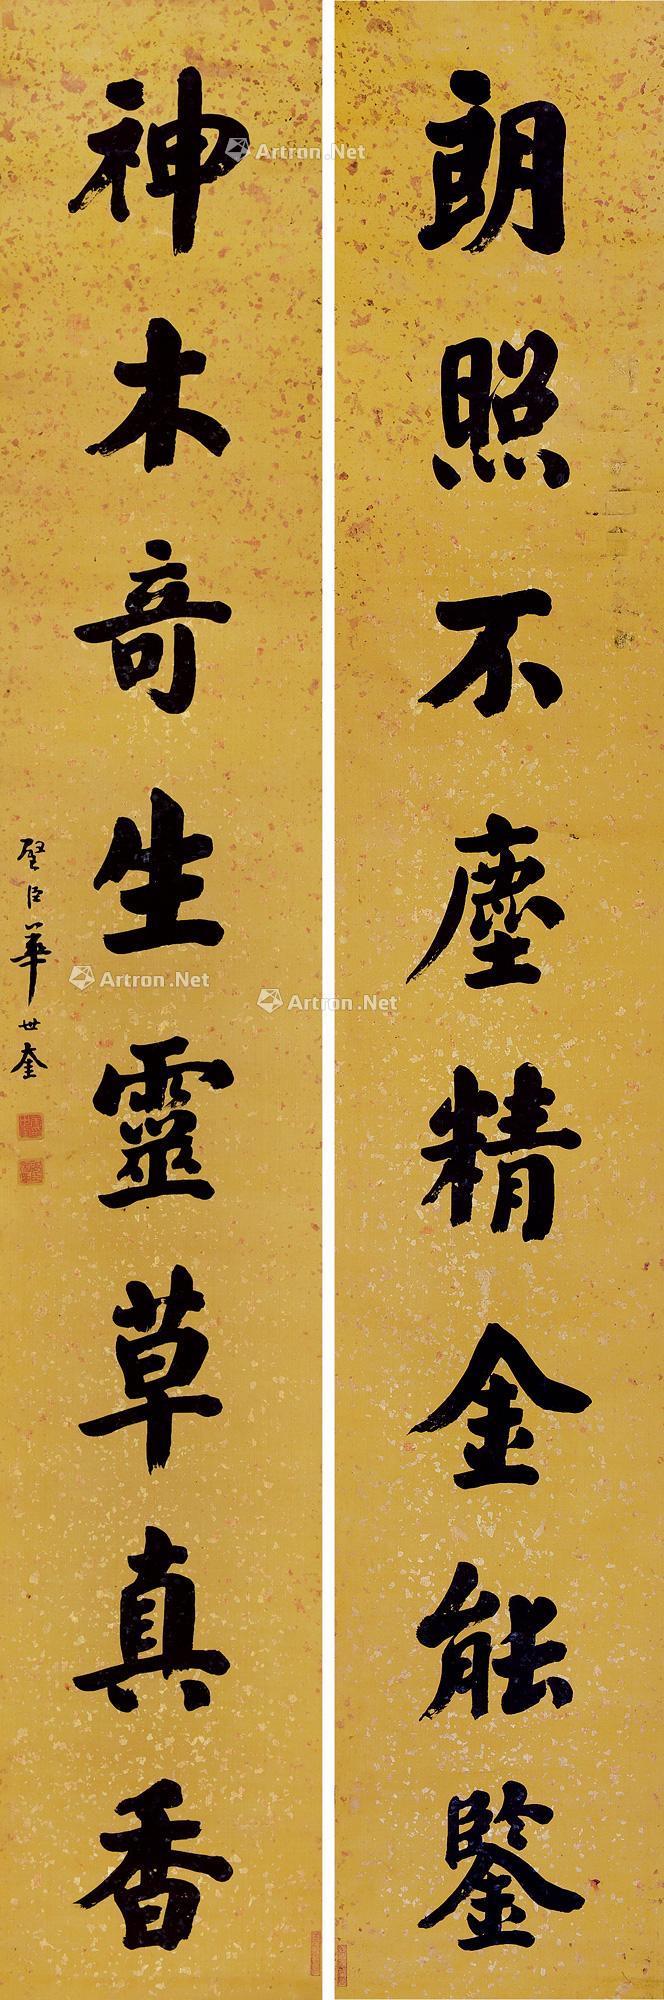 朗照不塵精金能鑒
神木奇生靈草真香
壁臣華世奎
Artron.Net
Artron.Net
Artron.Net